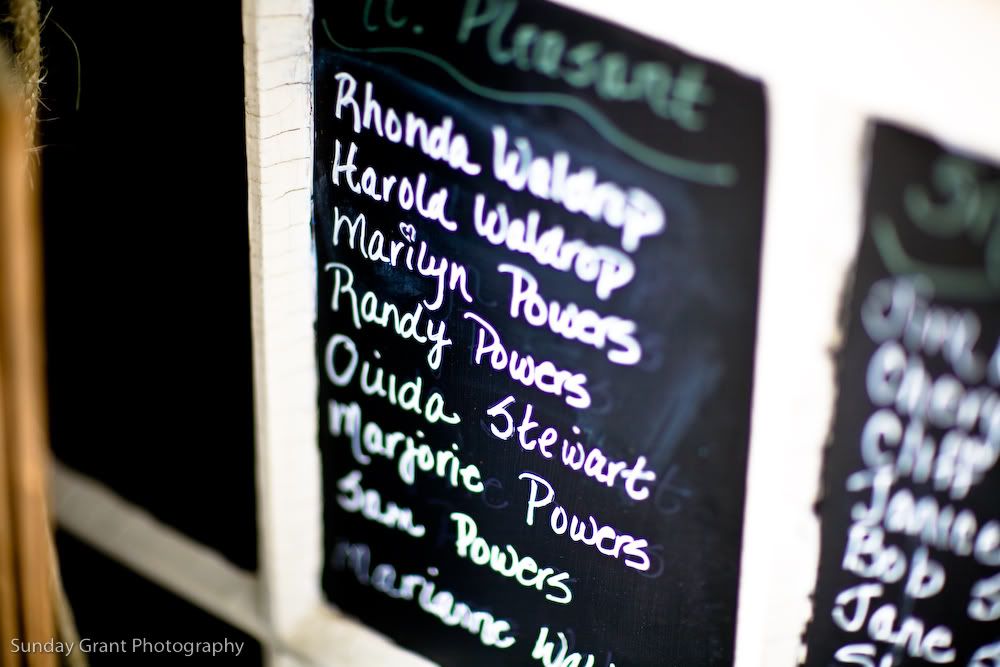 Mt. Pleasant
Rhonda Waldrop
Harold Waldrop
Marilyn Powers
Randy Powers
Ouida Stewart
Marjorie Powers
Sam Powers
Marianne
Jim
Cheryl
Cliff
Janice
Bob
Jane
Sunday Grant Photography